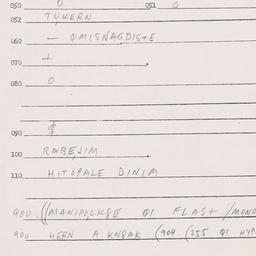 050 0 051 0
052 TUKERN
060 — QMISNAGDIS+E
070 +
080 0
090 $
100 RABEJIM
110 HITOPALE DINIM
900 ((MANIPOLK$E QI FLAS+ /MONO
900 HERN A KN$AK (904 (255 QI HYP